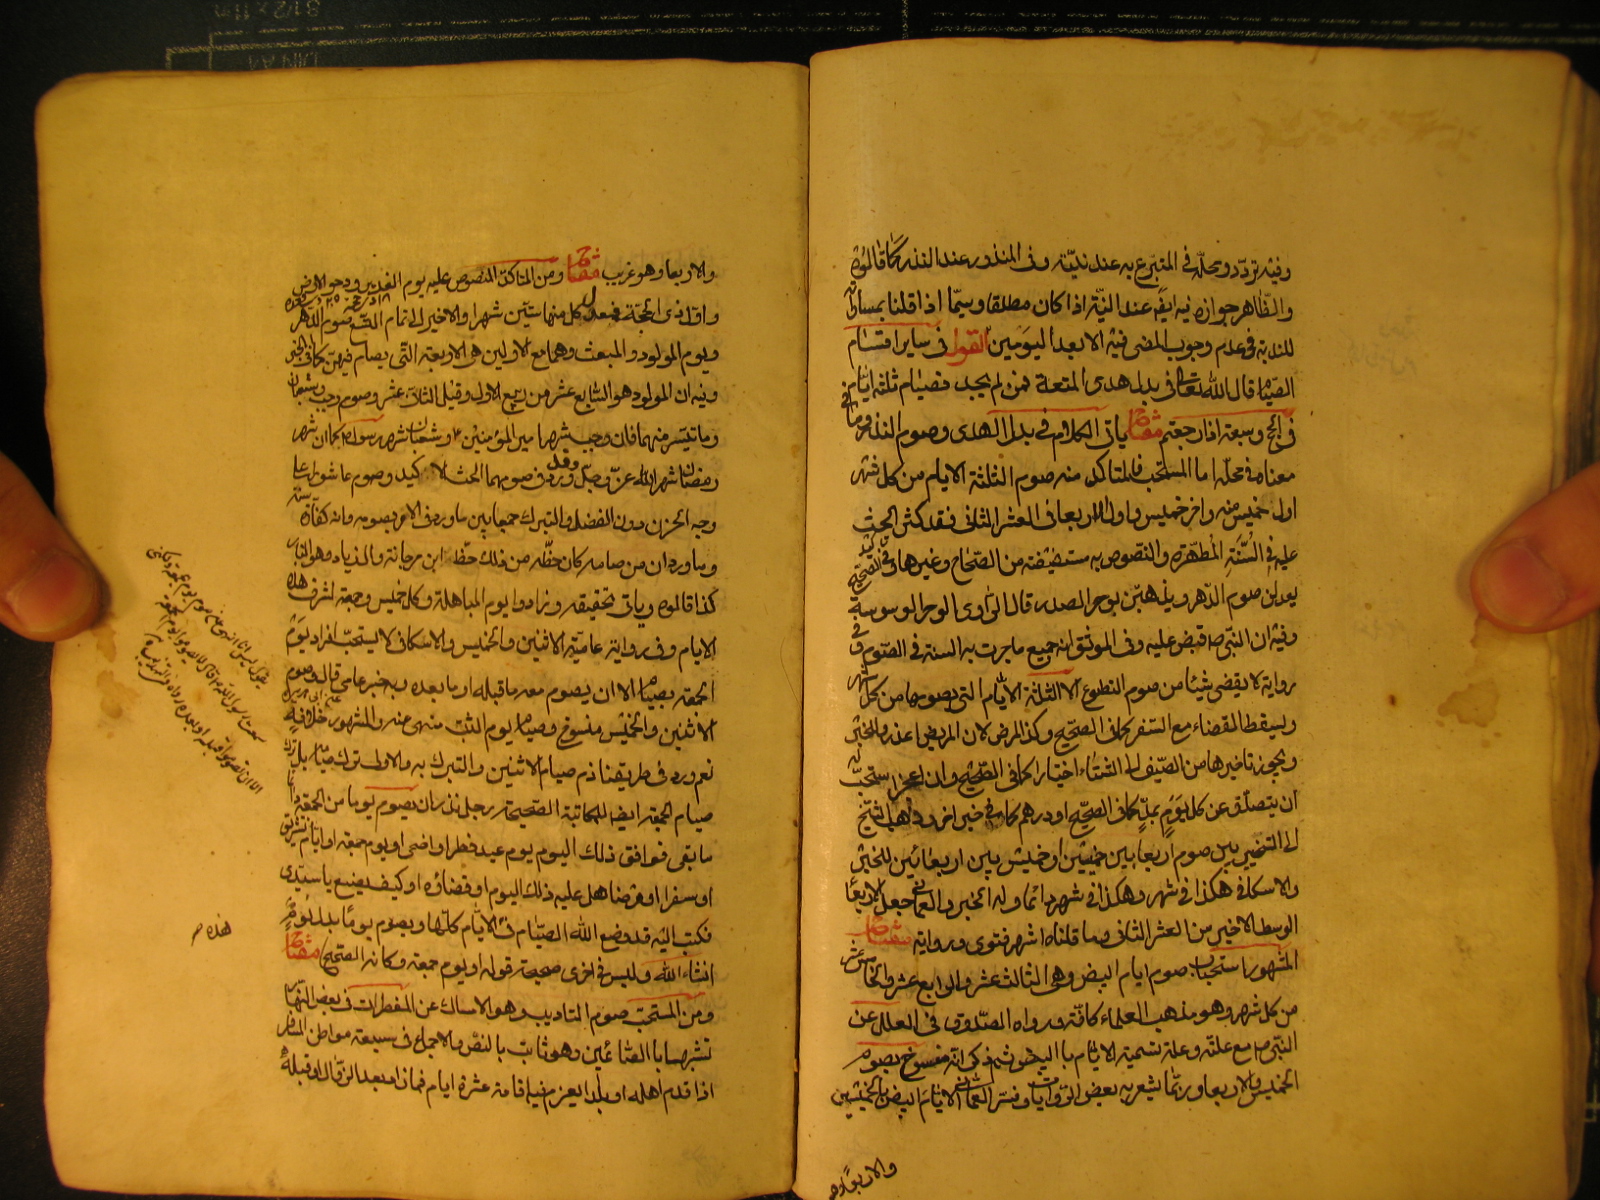 وفيه تردد ومحله في المتبرع به عند نديته وفي المنذور عند النذر كما قالوه
والظاهر جوازه فيه ايضا عند النية اذا كان مطلقا وسيما اذا قلنا بمساواته
للندبة في عدم وجوب المضي فيه الا بعد اليومين القول في ساير اقسام
الصيام قال الله تعالى في بدل هدى المتعة فمن لم يجد فصيام ثلثة ايام
في الحج وسبعة اذا رجعتم مفتاح ياتى الكلام في بدل الهدى وصوم النذر وما في
معناه في محله اما المستحب فالمتاكد منه صوم الثلثة الايام من كل شهر
اول خميس منه واخر خميس واول اربعا في العشر الثانى فقد كثر الحث
عليه في السنة المطهرة والنصوص به مستفيضة من الصحاح وغيرها في الصحيح
يعدلن صوم الدهر ويذهبن بوحر الصدر قال الراوى الوحر الوسوسة
وفيه ان النبى ص قبض عليه وفى الموثق انه جميع ما جرت به السنة في الصوم وفى
رواية لا يقضى شيئا من صوم التطوع الا الثلثة الايام التى يصومها من كل شهر
ويسقط القضاء مع السفر كما في الصحيح وكذا المرض لان المريض اعذر وللخبر
ويجوز تاخيرها من الصيف الى الشتاء اختيارا كما في الصحيح وان عجز استحب له
ان يتصدق عن كل يوم بمد كما في الصحيح او درهم كما في خبر اخر وذهب الشيخ
الى التخيير بين صوم اربعا بين خميسين او خميس بين اربعائين للخبر
والاسكافى هكذا في شهر وهكذا في شهر دائما وله الخبر والعمانى جعل الاربعا
الوسط الاخير من العشر الثانى وما قلناه اشهر فتوى ورواية مفتاح
المشهور استحباب صوم ايام البيض وهى الثالث عشر والرابع عشر والخامس عشر
من كل شهر وهو مذهب العلماء كافة ورواه الصدوق في العلل عن
النبى ص مع علته وعلة تسمية الايام بالبيض ثم ذكر انه منسوخ بصوم
الخميس والاربعا وربما يشعر به بعض الروايات وفسر العمانى الايام البيض بالخميسين
والاربعا وهو
والاربعا وهو غريب مفتاح ومن المتاكد المنصوص عليه يوم الغدير ودحو الارض
واول ذى الحجة فيعدل كل منها ستين شهرا والاخير الى تمام التسع صوم الدهر
ويوم المولود والمبعث وهما مع الاولين هى الاربعة التى يصام فيهن كما في الخبر
وفيه ان المولود هو السابع عشر من ربيع الاول وقيل الثانى عشر وصوم رجب وشعبان
وما تيسر منهما فان رجب شهر امير المؤمنين ع وشعبان شهر رسول الله ص كما ان شهر
رمضان شهر الله عز وجل وقد ورد في صومهما الحث الاكيد وصوم عاشورا على
وجه الحزن دون الفضل والتبرك جمعا بين ما ورد في الامر بصومه وانه كفارة سنة
وما ورد ان من صامه كان حظه من ذلك حظ ابن مرجانة وال زياد وهو النار
كذا قالوه وياتى تحقيقه وزادوا يوم المباهلة وكل خميس وجمعة لشرف هذه
الايام وفى رواية عامية الاثنين والخميس والاسكافى لا يستحب افراد يوم
الجمعة بصيام الا ان يصوم معه ما قبله او ما بعده وبه خبر عامى قال وصوم
الاثنين والخميس منسوخ وصيام يوم السبت منهى عنه والمشهور خلافه
نعم ورد في طريقنا ذم صيام الاثنين والتبرك به والاولى ترك صيامه بل ترك
صيام الجمعة ايضا للمكاتبة الصحيحة رجل نذر ان يصوم يوما من الجمعة دائما
ما بقى فوافق ذلك اليوم يوم عيد فطر او اضحى او يوم جمعة او ايام تشريق
او سفرا او مرضا هل عليه ذلك اليوم او قضاؤه او كيف يصنع يا سيدى
فكتب اليه قد وضع الله الصيام في الايام كلها ويصوم يوما بدل يوم
انشاء الله وليس في اخرى صحيحة قوله او يوم جمعة وكانه الصحيح مفتاح
ومن المستحب صوم التاديب وهو الامساك عن المفطرات في بعض النهار
تشبها بالصائمين وهو ثابت بالنص والاجماع في سبعة مواطن المسافر
اذا قدم اهله او بلدا يعزم فيه اقامة عشرة ايام فما زاد بعد الزوال او قبله
هذه ص